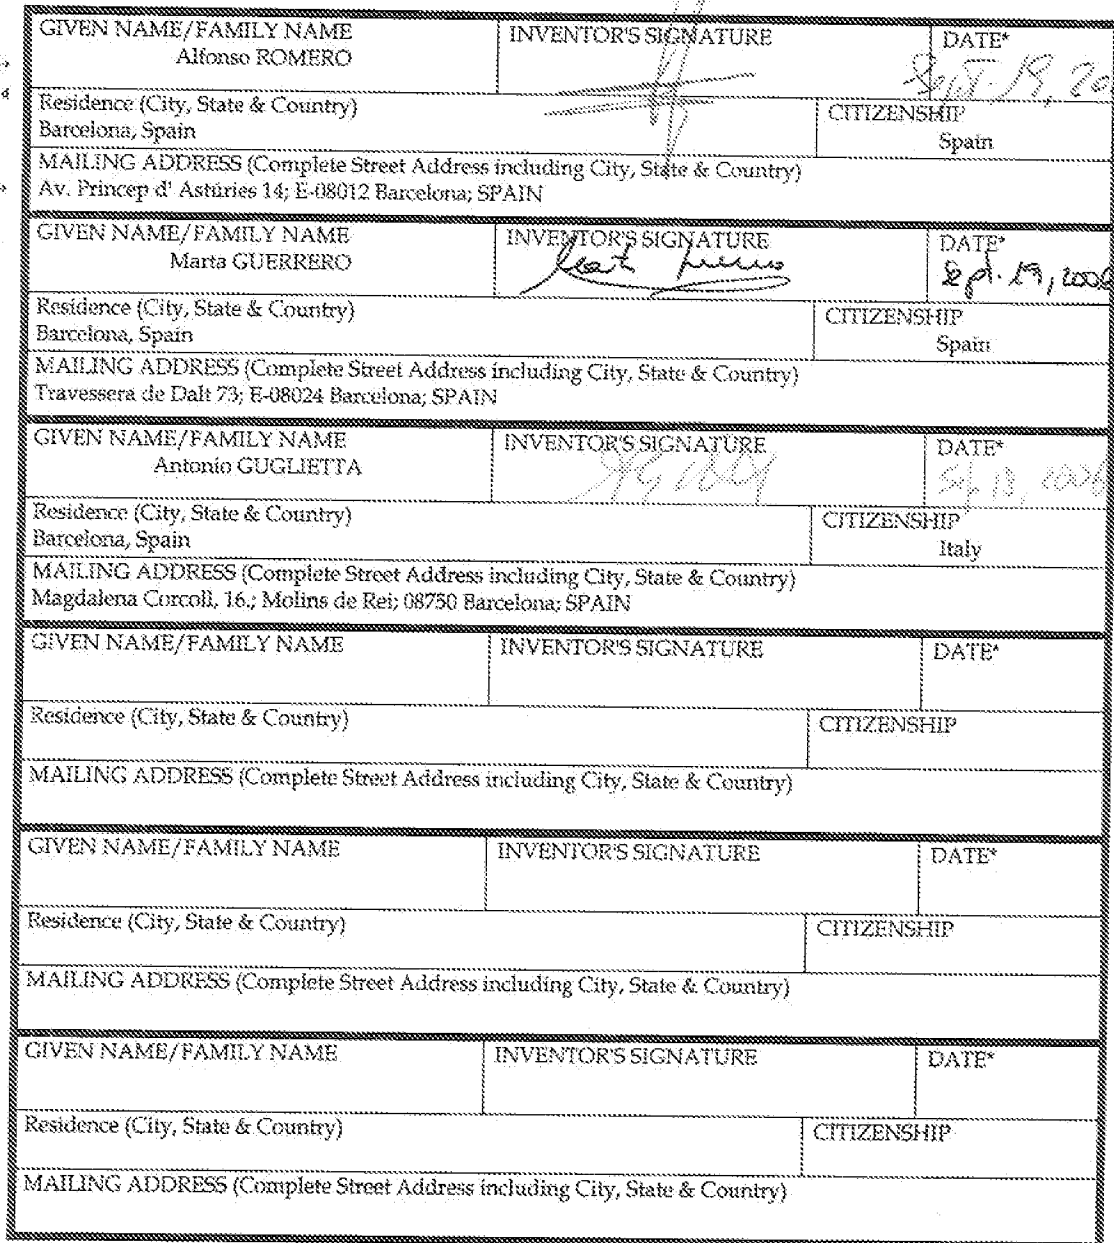 GIVEN NAME/FAMILY NAME INVENTOR'S SIGNATURE DATE*
Alfonso ROMERO Sept. 19, 20
Residence (City, State & Country) CITIZENSHIP
Barcelona, Spain Spain
MAILING ADDRESS (Complete Street Address including City, State & Country)
Av. Princep d' Astúries 14; E-08012 Barcelona; SPAIN
GIVEN NAME/FAMILY NAME INVENTOR'S SIGNATURE DATE*
Marta GUERRERO Sept. 19, 2006
Residence (City, State & Country) CITIZENSHIP
Barcelona, Spain Spain
MAILING ADDRESS (Complete Street Address including City, State & Country)
Travessera de Dalt 73; E-08024 Barcelona; SPAIN
GIVEN NAME/FAMILY NAME INVENTOR'S SIGNATURE DATE*
Antonio GUGLIETTA 2006
Residence (City, State & Country) CITIZENSHIP
Barcelona, Spain Italy
MAILING ADDRESS (Complete Street Address including City, State & Country)
Magdalena Corcoll, 16.; Molins de Rei; 08750 Barcelona; SPAIN
GIVEN NAME/FAMILY NAME INVENTOR'S SIGNATURE DATE*
Residence (City, State & Country) CITIZENSHIP
MAILING ADDRESS (Complete Street Address including City, State & Country)
GIVEN NAME/FAMILY NAME INVENTOR'S SIGNATURE DATE*
Residence (City, State & Country) CITIZENSHIP
MAILING ADDRESS (Complete Street Address including City, State & Country)
GIVEN NAME/FAMILY NAME INVENTOR'S SIGNATURE DATE*
Residence (City, State & Country) CITIZENSHIP
MAILING ADDRESS (Complete Street Address including City, State & Country)